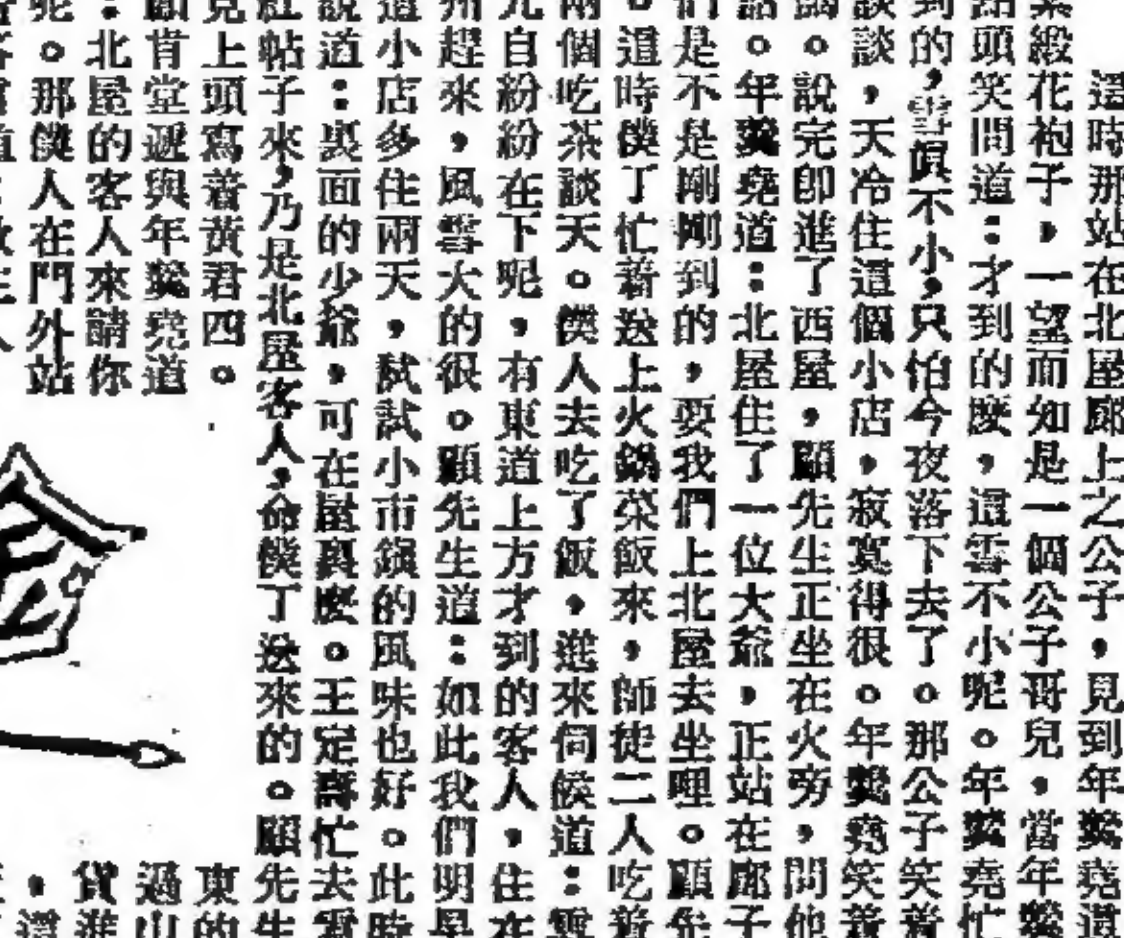 這時那站在北屋廊上之公子,見到年羹堯這
緞花袍子,一望而知是一個公子哥兒,當年羹
點頭笑問道:才到的麼,這雪不小呢。年羹堯忙
到的,雪眞不小,只怕今夜落下去了。那公子笑着
談談,天冷住這個小店,寂寞得很。年羹堯笑着
。說完卽進了西屋,顧先生正坐在火旁,問他
話。年羹堯道:北屋住了一位大爺,正站在廊子
們是不是剛剛到的,要我們上北屋去坐哩。顧先
。這時僕丁忙着送上火鍋菜飯來,師徒二人吃着
兩個吃茶談天。僕人去吃了飯,進來伺候道:雪
兀自紛紛在下呢,有東道上方才到的客人,住在
州趕來,風雪大的很。顧先生道:如此我們明早
道小店多住兩天,試試小市鎮的風味也好。此時
說道:裏面的少爺,可在屋裏麼。王定壽忙去看
紅帖子來,乃是北屋客人,命僕丁送來的。顧先生
見上頭寫着黃君四。
顧肯堂遞與年羹堯道
:北屋的客人來請你
呢。那僕人在門外站
東的
過山
貨進
,還